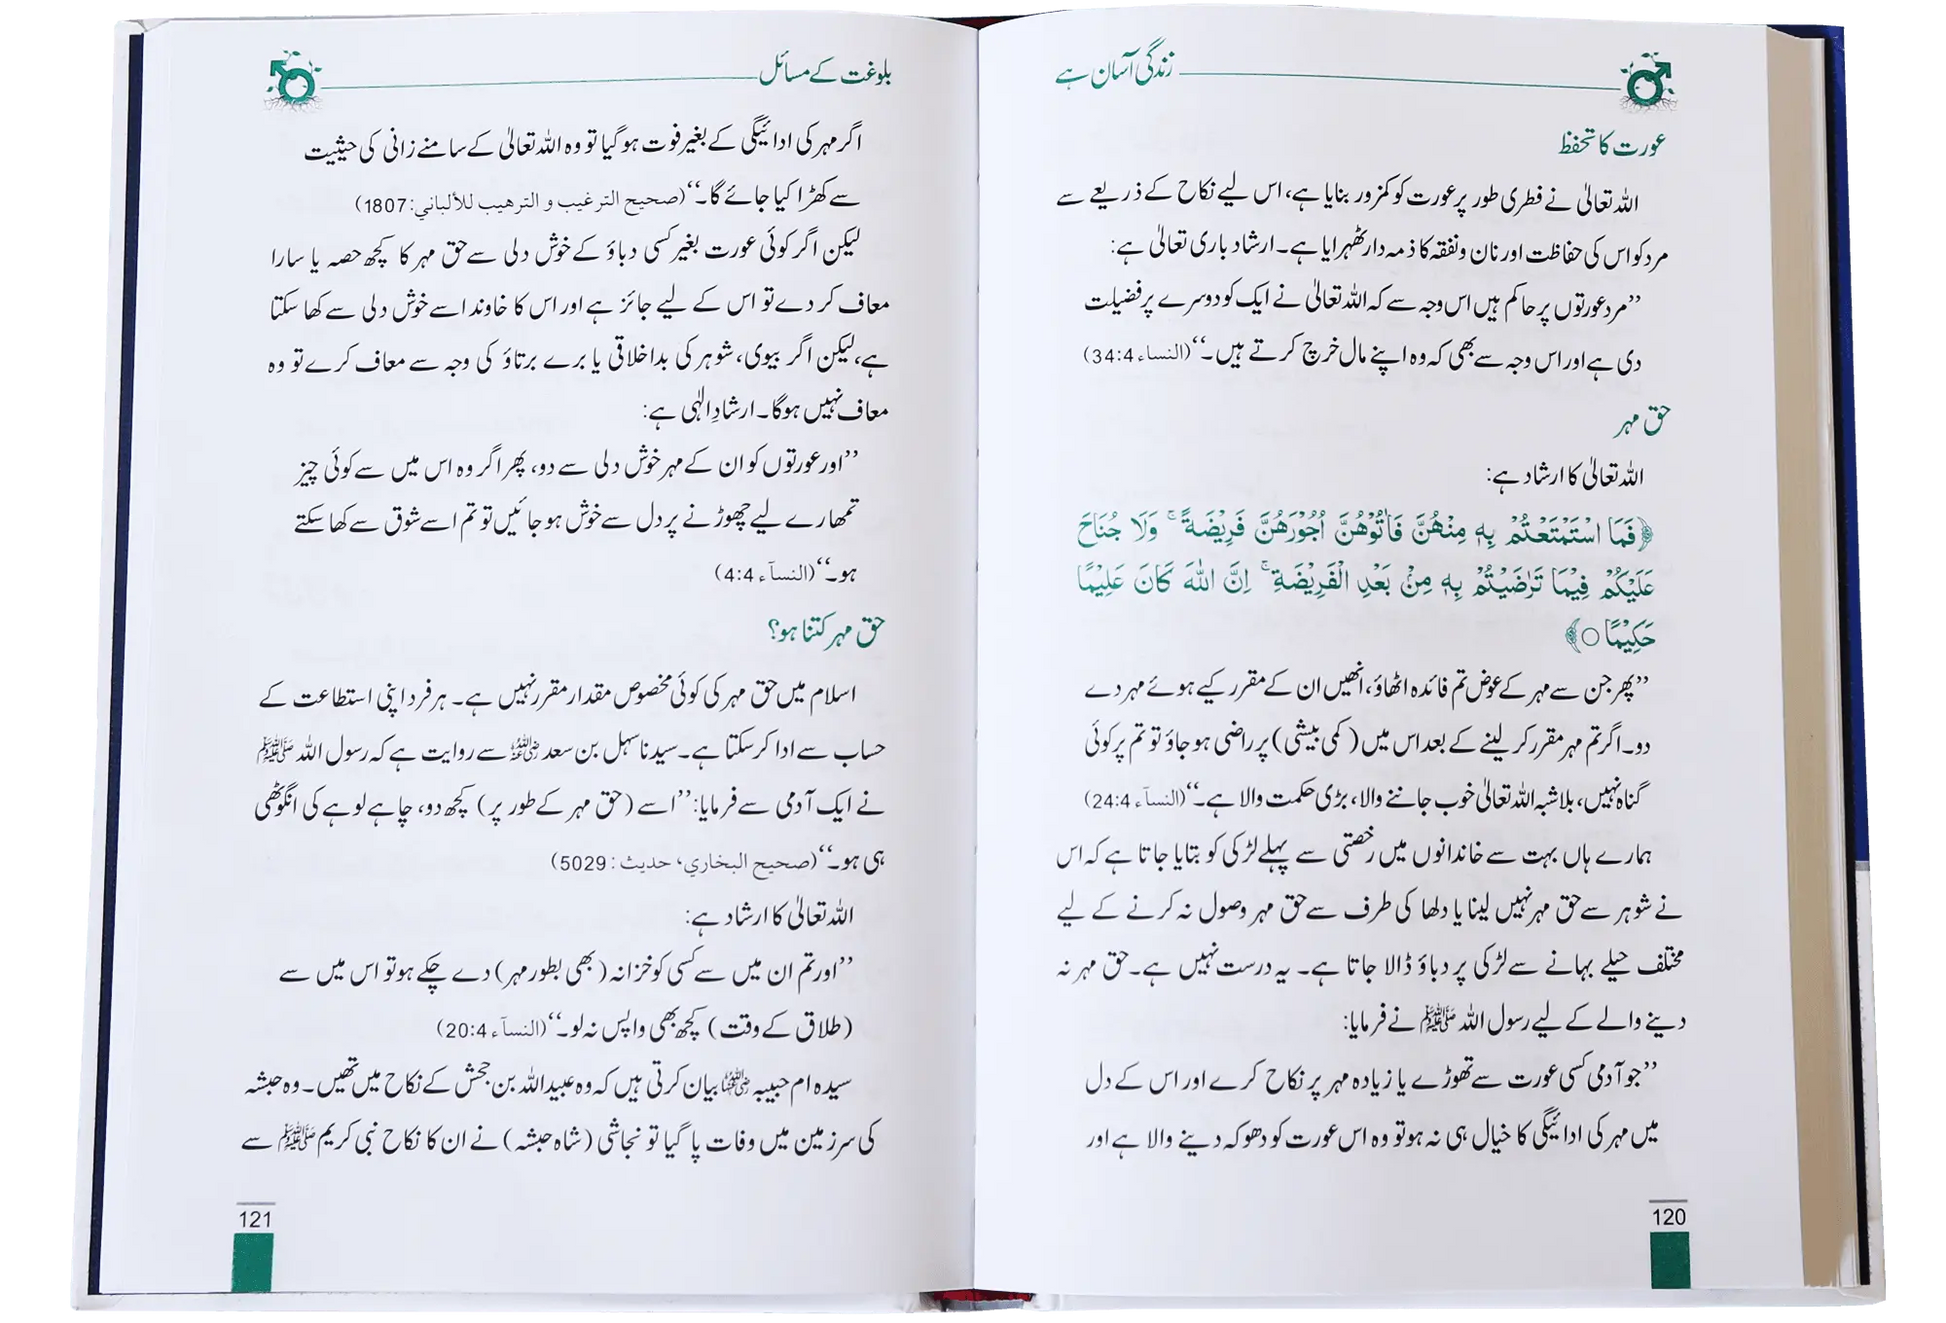 زندگی آسان ہے
عورت کا تحفظ
اللہ تعالیٰ نے فطری طور پر عورت کو کمزور بنایا ہے، اس لیے نکاح کے ذریعے سے
مرد کو اس کی حفاظت اور نان و نفقہ کا ذمہ دار ٹھہرایا ہے۔ ارشاد باری تعالیٰ ہے:
’’مرد عورتوں پر حاکم ہیں اس وجہ سے کہ اللہ تعالیٰ نے ایک کو دوسرے پر فضیلت
دی ہے اور اس وجہ سے بھی کہ وہ اپنے مال خرچ کرتے ہیں۔‘‘ (النساء 34:4)
حق مہر
اللہ تعالیٰ کا ارشاد ہے:
﴿فَمَا اسْتَمْتَعْتُمْ بِهٖ مِنْهُنَّ فَاٰتُوْهُنَّ اُجُوْرَهُنَّ فَرِيْضَةً ۚ وَلَا جُنَاحَ
عَلَيْكُمْ فِيْمَا تَرٰضَيْتُمْ بِهٖ مِنْۢ بَعْدِ الْفَرِيْضَةِ ۚ اِنَّ اللّٰهَ كَانَ عَلِيْمًا
حَكِيْمًا ○﴾
’’پھر جن سے مہر کے عوض تم فائدہ اٹھاؤ، انھیں ان کے مقرر کیے ہوئے مہر دے
دو۔ اگر تم مہر مقرر کر لینے کے بعد اس میں (کمی بیشی) پر راضی ہو جاؤ تو تم پر کوئی
گناہ نہیں، بلاشبہ اللہ تعالیٰ خوب جاننے والا، بڑی حکمت والا ہے۔‘‘ (النسآء 24:4)
ہمارے ہاں بہت سے خاندانوں میں رخصتی سے پہلے لڑکی کو بتایا جاتا ہے کہ اس
نے شوہر سے حق مہر نہیں لینا یا دلھا کی طرف سے حق مہر وصول نہ کرنے کے لیے
مختلف حیلے بہانے سے لڑکی پر دباؤ ڈالا جاتا ہے۔ یہ درست نہیں ہے۔ حق مہر نہ
دینے والے کے لیے رسول اللہ ﷺ نے فرمایا:
’’جو آدمی کسی عورت سے تھوڑے یا زیادہ مہر پر نکاح کرے اور اس کے دل
میں مہر کی ادائیگی کا خیال ہی نہ ہو تو وہ اس عورت کو دھوکہ دینے والا ہے اور
120
بلوغت کے مسائل
اگر مہر کی ادائیگی کے بغیر فوت ہو گیا تو وہ اللہ تعالیٰ کے سامنے زانی کی حیثیت
سے کھڑا کیا جائے گا۔‘‘ (صحيح الترغيب و الترهيب للألباني: 1807)
لیکن اگر کوئی عورت بغیر کسی دباؤ کے خوش دلی سے حق مہر کا کچھ حصہ یا سارا
معاف کر دے تو اس کے لیے جائز ہے اور اس کا خاوند اسے خوش دلی سے کھا سکتا
ہے، لیکن اگر بیوی، شوہر کی بداخلاقی یا برے برتاؤ کی وجہ سے معاف کرے تو وہ
معاف نہیں ہوگا۔ ارشادِ الٰہی ہے:
’’اور عورتوں کو ان کے مہر خوش دلی سے دو، پھر اگر وہ اس میں سے کوئی چیز
تمھارے لیے چھوڑنے پر دل سے خوش ہو جائیں تو تم اسے شوق سے کھا سکتے
ہو۔‘‘ (النسآء 4:4)
حق مہر کتنا ہو؟
اسلام میں حق مہر کی کوئی مخصوص مقدار مقرر نہیں ہے۔ ہر فرد اپنی استطاعت کے
حساب سے ادا کر سکتا ہے۔ سیدنا سہل بن سعد رضی اللہ عنہ سے روایت ہے کہ رسول اللہ ﷺ
نے ایک آدمی سے فرمایا: ’’اسے (حق مہر کے طور پر) کچھ دو، چاہے لوہے کی انگوٹھی
ہی ہو۔‘‘ (صحيح البخاري، حديث: 5029)
اللہ تعالیٰ کا ارشاد ہے:
’’اور تم ان میں سے کسی کو خزانہ (بھی بطور مہر) دے چکے ہو تو اس میں سے
(طلاق کے وقت) کچھ بھی واپس نہ لو۔‘‘ (النسآء 20:4)
سیدہ ام حبیبہ رضی اللہ عنہا بیان کرتی ہیں کہ وہ عبیداللہ بن جحش کے نکاح میں تھیں۔ وہ حبشہ
کی سرزمین میں وفات پا گیا تو نجاشی (شاہ حبشہ) نے ان کا نکاح نبی کریم ﷺ سے
121